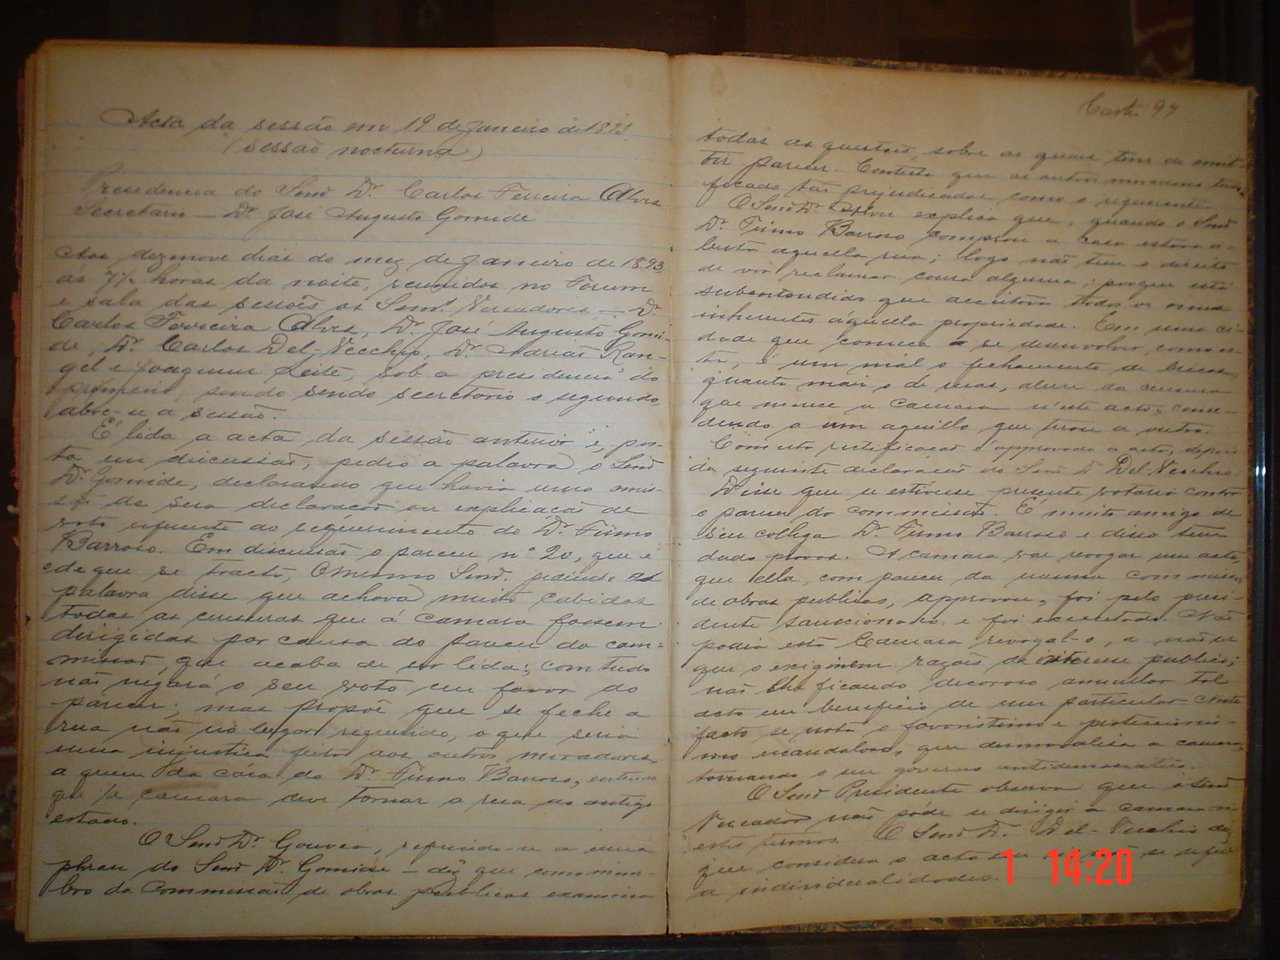 Acta da sessão em 19 de Janeiro de 1893
(sessão nocturna)
Presidencia do Senr. Dr. Carlos Ferreira Alves
Secretario — Dr. José Augusto Gomide
Aos dezenove dias do mez de Janeiro de 1893,
ás 7½ horas da noite, reunidos no Forum
e sala das sessões os Senrs. Vereadores — Dr.
Carlos Ferreira Alves, Dr. José Augusto Gomi-
de, Dr. Carlos Del-Vecchio, Dr. Adrião Ran-
gel e Joaquim Leite, sob a presidencia do
primeiro, sendo secretario o segundo,
abre-se a sessão.
É lida a acta da sessão anterior e, pos-
ta em discussão, pedio a palavra o Senr.
Dr. Gomide, declarando que havia uma omis-
são de sua declaração ou explicação de
voto referente ao requerimento do Dr. Firmo
Barroso. Em discussão o parecer nº 20, que é
de que se tracta, O mesmo Senr. pedindo a
palavra disse que achava muito cabidas
todas as censuras que á camara fossem
dirigidas por causa do parecer da com-
missão, que acaba de ser lida; com tudo
não negará o seu voto em favor do
parecer; mas propõe que se feche a
rua não no lugar requerido, o que seria
uma injustiça feita aos outros moradores
a quem da casa do Dr. Firmo Barroso, entende
que a camara deve tornar a rua ao antigo
estado.
O Senr. Dr. Gouvea, referindo-se a uma
phrase do Senr. Dr. Gomide — diz que como mem-
bro da Commissão de obras publicas examina
99
todas as questões, sobre as quaes tem de emit-
tir parecer. Contesta que os outros moradores
ficado tão prejudicados como o requerente.
O Senr. Dr. explica que, quando o Senr.
Dr. Firmo Barroso comprou a casa estava a-
berta aquella rua; logo não tem o direito
de vir reclamar cousa alguma; porque está
subentendido que acceitou todos os onus
inherentes áquella propriedade. Em uma ci-
dade que começa a se desenvolver, como es-
ta, é um mal o fechamento de beccos,
quanto mais o de ruas, alem da censura
que merece a camara n'este acto, conce-
dendo a um aquillo que tirou a outro.
Com esta rectificação é approvada a acta, depois
da seguinte declaração do Senr. Dr. Del-Vecchio.
Disse que se estivesse presente votaria contra
o parecer da commissão. É muito amigo de
seu collega Dr. Firmo Barroso e disso tem
dado provas. A camara vai revogar um acto,
que ella, com parecer da mesma commissão
de obras publicas, approvou, foi pelo presi-
dente sanccionado e foi executado. Não
podia esta Camara revogal-o, a não ser
que o exigissem razões de interesse publico;
não lhe ficando decoroso annullar tal
acto em beneficio de um particular. Neste
facto se nota o favoritismo e proteccionis-
mo escandaloso, que desmoralisa a camara,
tornando o seu governo antidemocratico.
O Senr. Presidente observa que o Senr.
Vereador não póde se dirigir á camara n'
estes termos. O Senr. Dr. Del-Vecchio diz
que considera o acto em se refere
a individualidades.
1 14:20